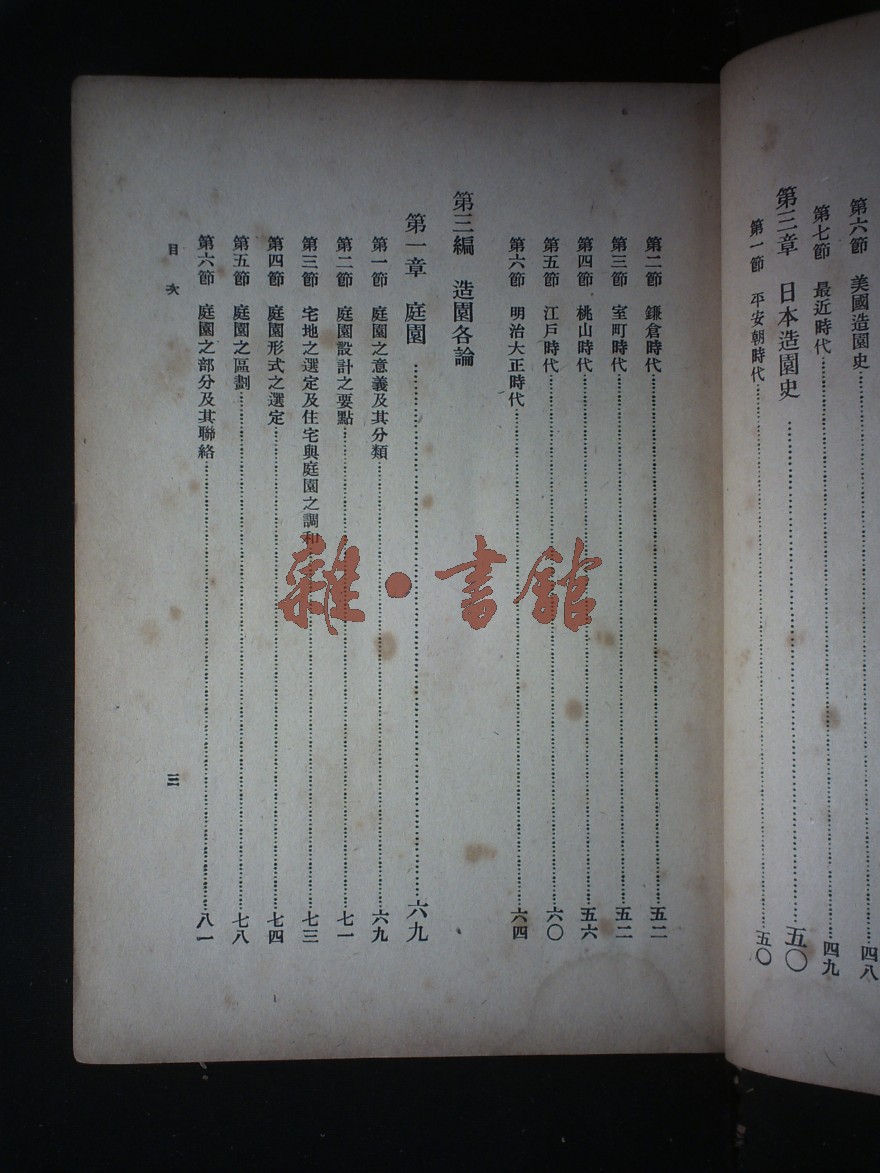 第六節　美國造園史……四八
第七節　最近時代……四九
第三章　日本造園史……五〇
第一節　平安朝時代……五〇
第二節　鎌倉時代……五二
第三節　室町時代……五二
第四節　桃山時代……五六
第五節　江戶時代……六〇
第六節　明治大正時代……六四
第三編　造園各論
第一章　庭園……六九
第一節　庭園之意義及其分類……六九
第二節　庭園設計之要點……七一
第三節　宅地之選定及住宅與庭園之調和……七三
第四節　庭園形式之選定……七四
第五節　庭園之區劃……七八
第六節　庭園之部分及其聯絡……八一
目次　三
雜·書館